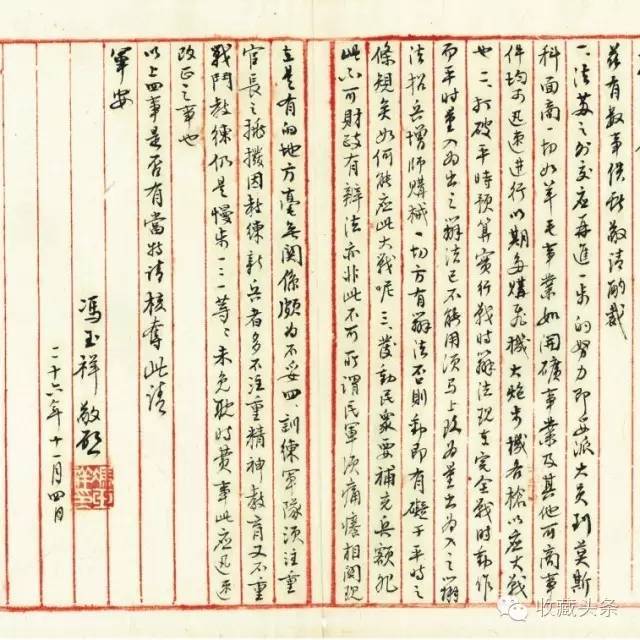 茲有數事供獻敬請酌裁
一、法蘇之外交應再進一步的努力即要派大員到莫斯
科面商一切如羊毛事業如開礦事業及其他可商事
件均可迅速進行以期多購飛機大炮步機各槍以應大戰
也二、打破平時預算實行戰時辦法現在完全戰時動作
而平時量入為出之辦法已不能用須馬上改為量出為入之辦
法招兵增師購械一切方有辦法否則動即有礙于平時之
條規矣如何能應此大戰呢三、發動民眾要補充兵額非
此不可財政有辦法亦非此不可所謂民軍須痛癢相關現
在是有的地方毫無關係頗為不妥四、訓練軍隊須注重
官長之挑撥因教練新兵者多不注重精神教育又不重
戰鬥教練仍是慢步一二一等等未免耽時費事此應迅速
改正之事也
以上四事是否有當特請核奪此請
軍安
馮玉祥敬啟
二十六年十一月四日
收藏头条